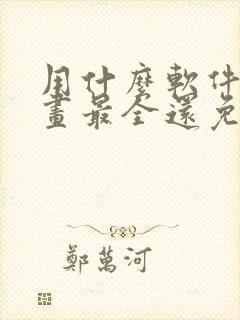 用什麼軟件
畫最全還免
鄭萬河